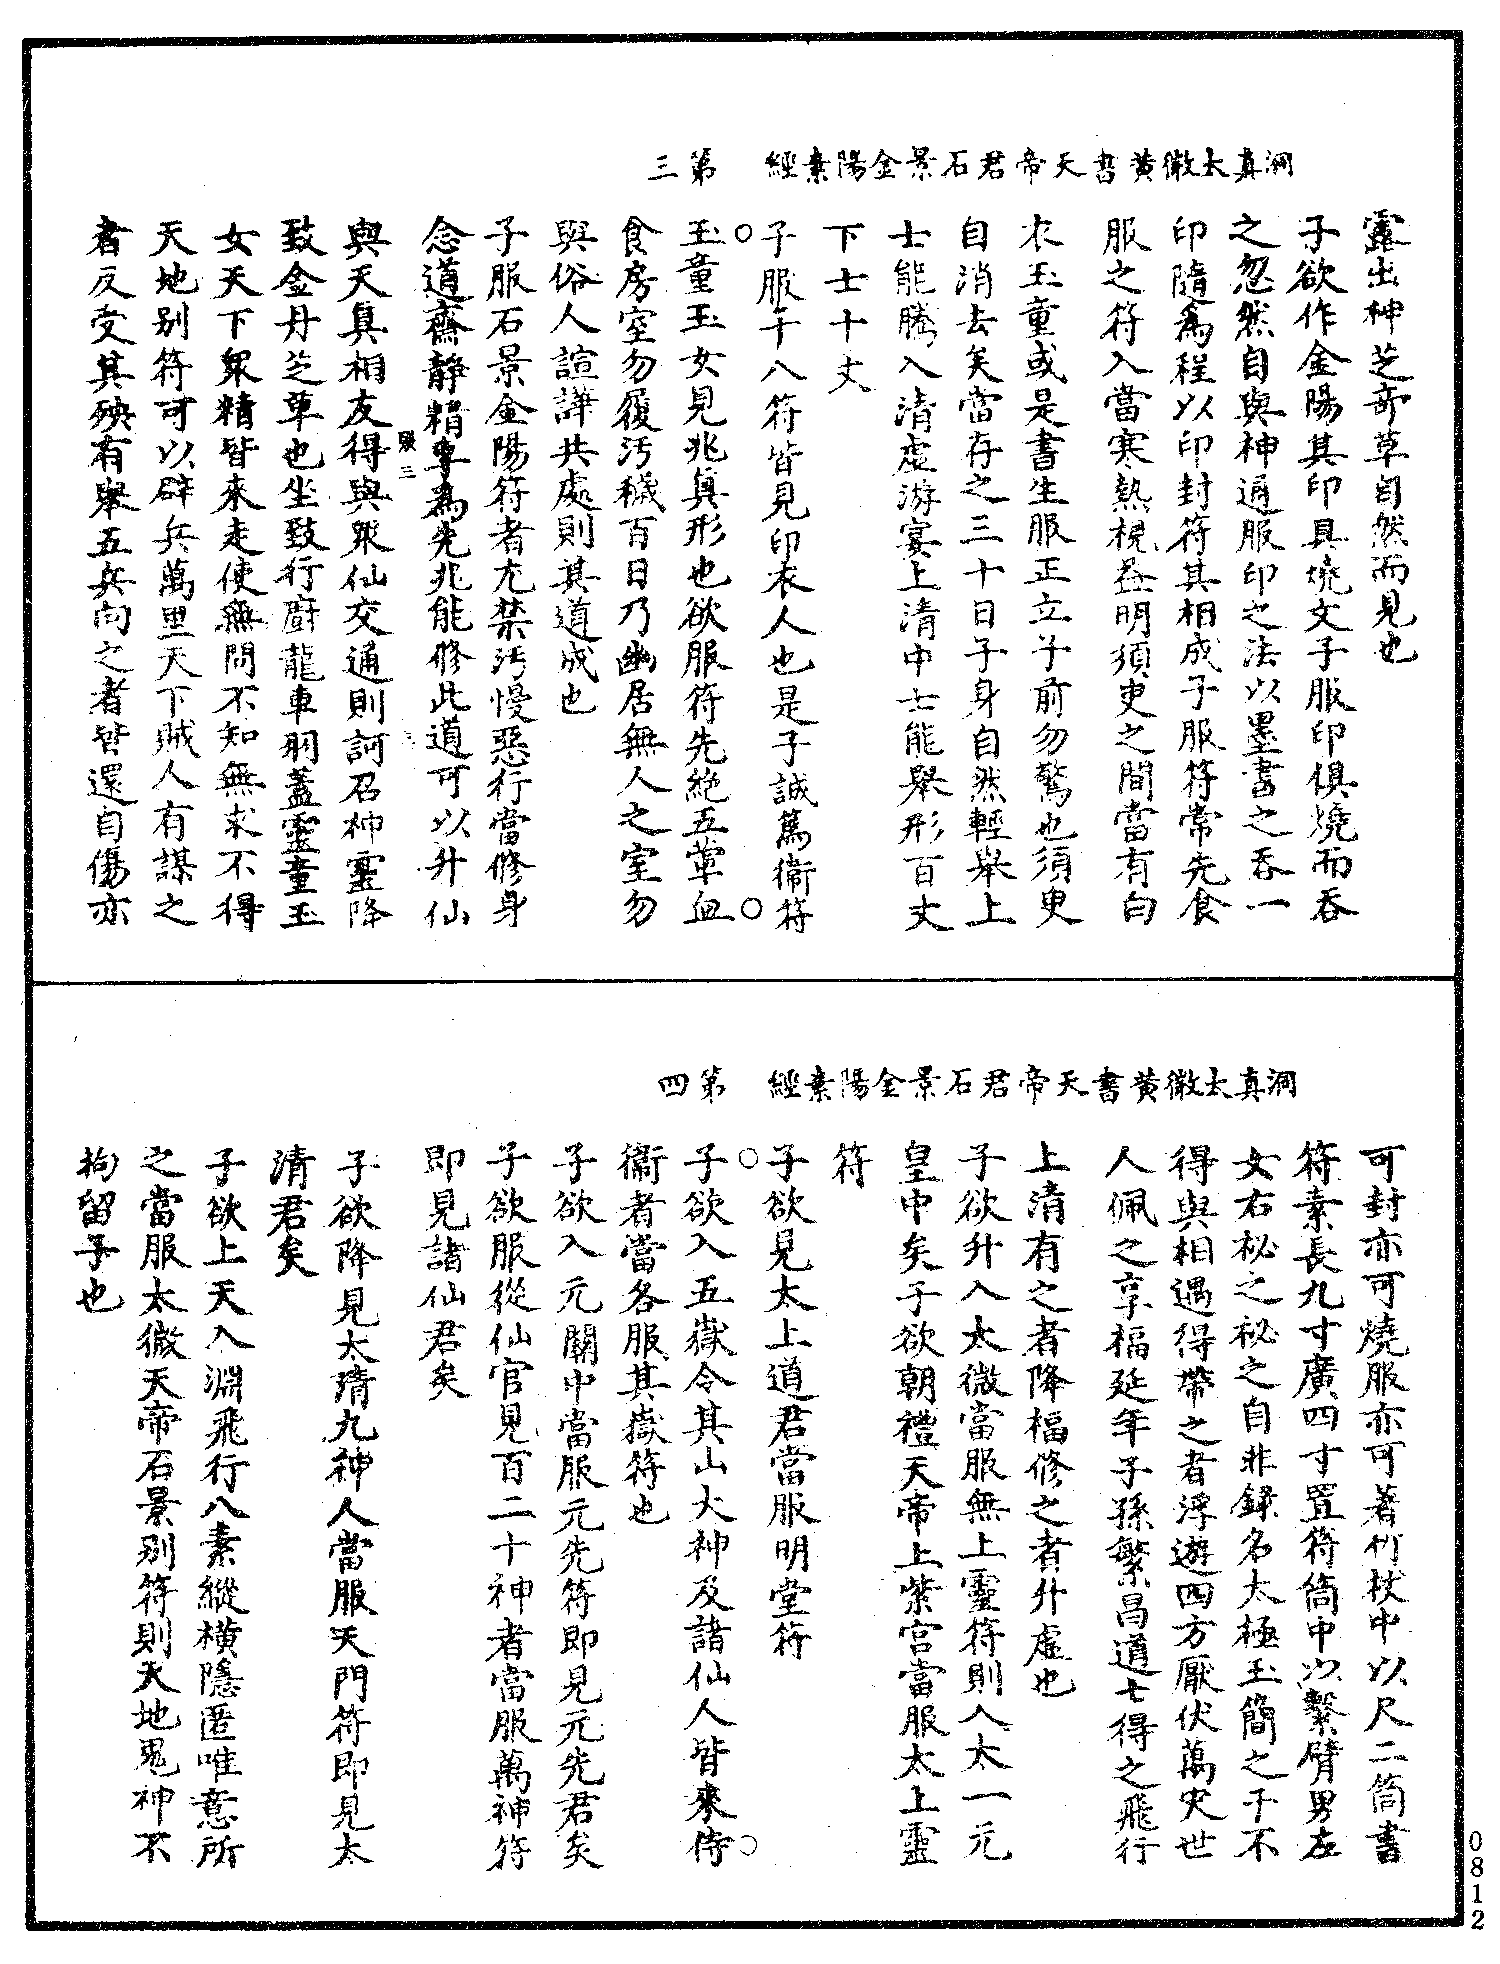 洞真太微黃書天帝君石景金陽素經　第三
露出神芝奇草自然而見也
子欲作金陽其印具燒文子服印俱燒而吞
之忽然自與神通服印之法以墨書之吞一
印隨為程以印封符其相成子服符常先食
服之符入當寒熱視益明須臾之間當有白
衣玉童或是書生服正立子前勿驚也須臾
自消去矣當存之三十日子身自然輕舉上
士能騰入清虛游宴上清中士能舉形百丈
下士十丈
子服十八符皆見印衣人也是子誠篤衛符
玉童玉女見兆真形也欲服符先絕五葷血
食房室勿履汚穢百日乃幽居無人之室勿
與俗人諠譁共處則其道成也
子服石景金陽符者尤禁汚慢惡行當修身
念道齋靜精專為先兆能修此道可以升仙
與天真相友得與眾仙交通則訶召神靈降
致金丹芝草也坐致行廚龍車羽蓋靈童玉
女天下眾精皆來走使無問不知無求不得
天地別符可以辟兵萬里天下賊人有謀之
者反受其殃有舉五兵向之者皆還自傷亦
洞真太微黃書天帝君石景金陽素經　第四
可封亦可燒服亦可著竹杖中以尺二筒書
符素長九寸廣四寸置符筒中以繫臂男左
女右祕之祕之自非錄名太極玉簡之子不
得與相遇得帶之者浮遊四方厭伏萬灾世
人佩之享福延年子孫繁昌道士得之飛行
上清有之者降福修之者升虛也
子欲升入太微當服無上靈符則入太一元
皇中矣子欲朝禮天帝上紫宮當服太上靈
符
子欲見太上道君當服明堂符
子欲入五嶽令其山大神及諸仙人皆來侍
衞者當各服其嶽符也
子欲入元關中當服元先符即見元先君矣
子欲服從仙官見百二十神者當服萬神符
即見諸仙君矣
子欲降見太清九神人當服天門符即見太
清君矣
子欲上天入淵飛行八素縱橫隱匿唯意所
之當服太微天帝石景別符則天地鬼神不
拘留子也
0812